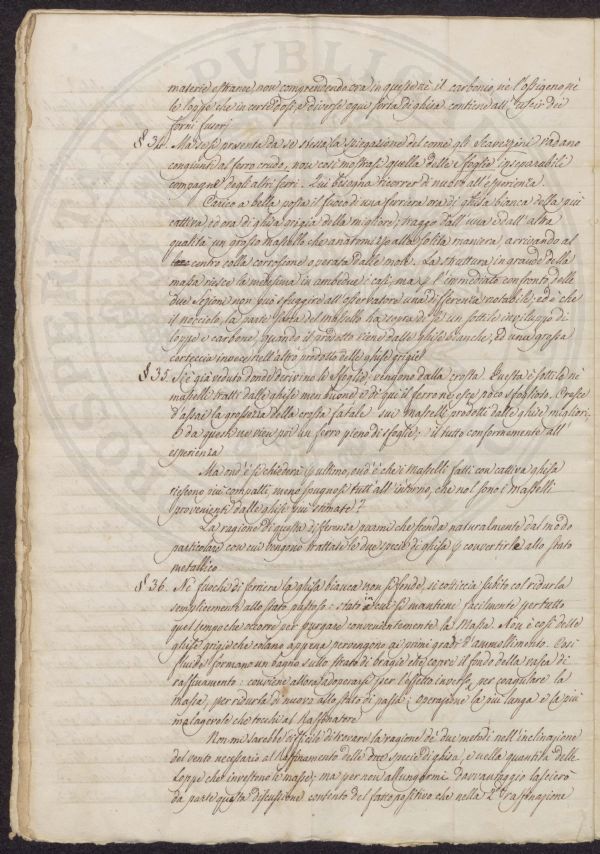 materie estranee, non comprendendo ora in queste nè il carbonio, nè l'ossigeno, nè
le loppe che in certe dosi, e diverse ogni sorta di ghisa contiene all'uscir dei
forni fusorj
§ 34. Ma se si presenta da se stessa la spiegazione del come gli vadano
congiunti al ferro crudo, non così mostrasi quella delle sfoglie inseparabile
compagne degli altri ferri. Qui bisogna ricorrer di nuovo all'esperienza.
Carico a bella posta il fuoco di una ferriera ora di ghisa bianca della più
cattiva, ed ora di ghisa grigia della migliore; traggo dall'una e dall'altra
qualità un grosso masello che anatomizzo alla solita maniera, arrivando al
centro colla corrosione operata dalle mote. La struttura in grande della
massa riesce la medesima in ambedue i casi, ma per l'immediato confronto delle
due sezioni non può sfuggire all'osservatore una differenza notabile, ed è che
il nocciolo, la parte sana del masello ha sopra di se un sottile inviluppo di
loppe e carbone, quando il prodotto viene dalle ghise bianche, ed una grossa
corteccia invece nell'altro prodotto delle ghise grigie.
§ 35. Si è già veduto donde derivino le sfoglie: vengono dalla crosta. Questa è sottile ne'
maselli tratti dalle ghise men buone, e di qui il ferro n'esce poco sfoglioso. Cresce
d'assai la grossezza della crosta fatale sui maselli prodotti dalle ghise migliori
e da questi ne vien poi un ferro pieno di sfoglie; il tutto conformemente all'
esperienza
Ma ond'è si chiederà per ultimo, ond'è che i maselli fatti con cattiva ghisa
riescono più compatti, meno spugnosi tutt'all'intorno, che nol sono i maselli
provenienti dalle ghise più stimate?
La ragione di questa differenza parmi che scenda naturalmente dal modo
particolare con cui vengono trattate le due specie di ghisa per convertirle allo stato
metallico
§ 36. Ne' fuochi di ferriera la ghisa bianca non si fonde, si cotticcia subito col ridurla
semplicemente allo stato pastoso: stato in cui si mantiene facilmente per tutto
quel tempo che occorre per purgare convenientemente la massa. Non è così delle
ghise grigie che colano appena pervengono ai primi gradi d'ammollimento. Così
fluide formano un bagno sullo strato di bragie che copre il fondo della vasca di
raffinamento: conviene allora adoperarsi per l'effetto inverso, per coagulare la
massa, per ridurla di nuovo allo stato di pasta; operazione la più lunga e la più
malagevole che tocchi al Raffinatore
Non mi sarebbe difficile di trovare la ragione de' due metodi nell'inclinazione
del vento necessario al raffinamento delle due specie di ghisa, e nella quantità delle
loppe che investono le masse; ma per non allungarmi davvantaggio lascierò
da parte questa discussione contento del fatto positivo che nella 2.da raffinazione